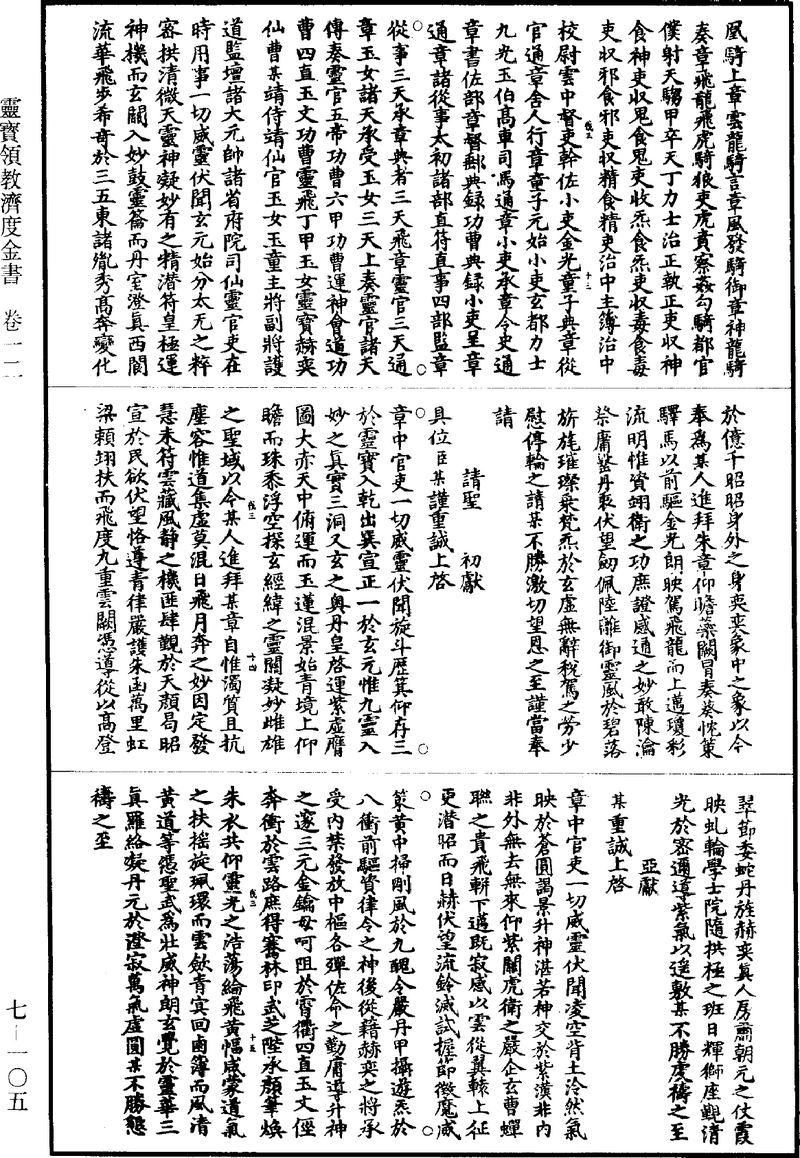 凰騎上章雲龍騎言章風發騎御章神龍騎
奏章飛龍飛虎騎狼吏虎賁察姦勾騎都官
僕射天騶甲卒天丁力士治正執正吏收神
食神吏收鬼食鬼吏收炁食炁吏收毒食毒
吏收邪食邪吏收精食精吏治中主簿治中
校尉雲中督吏幹佐小吏金光童子典章從
官通章舍人行章童子元始小吏玄都力士
九光玉伯高車司馬通章小吏承章令史通
章書佐部章督郵典錄功曹典錄小吏呈章
通章諸從事太初諸部直符直事四部監章
從事三天承章典者三天飛章靈官三天通
章玉女諸天承受玉女三天上奏靈官諸天
傳奏靈官五帝功曹六甲功曹運神會道功
曹四直玉文功曹靈飛丁甲玉女靈寶赫奕
仙曹某靖侍靖仙官玉女玉童主將副將護
道監壇諸大元帥諸省府院司仙靈官吏在
時用事一切威靈伏聞玄元始分太无之粹
審拱清微天靈神凝妙有之精潛符皇極運
神機而玄關入妙鼓靈籥而丹室澄真西閤
流華飛步希奇於三五東諸胤秀高奔變化
於億千昭昭身外之身奕奕象中之象以今
奉為某人進拜朱章仰瞻藥闕冒奏葵忱策
驛馬以前驅金光朗映駕飛龍而上邁瓊彩
流明惟資翊衛之功庶證感通之妙敢陳瀹
祭庸藎丹衷伏望劍佩陸離御靈風於碧落
旂旄璀璨乘梵炁於玄虛無辭稅駕之勞少
慰停輪之請某不勝激切望恩之至謹當奉
請
請聖　初獻
具位臣某謹重誠上啓
章中官吏一切威靈伏聞旋斗歷箕仰存三
於靈寶入乾出巽宣正一於玄元惟九靈入
妙之真實三洞又玄之奧丹皇啓運紫虛膺
圖大赤天中俯運而玉蓮混景始青境上仰
瞻而珠黍浮空探玄經緯之靈關凝妙雌雄
之聖域以今某人進拜某章自惟濁質且抗
塵容惟道集虛莫混日飛月奔之妙因定發
慧未符雲藏風靜之機匪肆覲於天顏曷昭
宣於民欲伏望恪導青律嚴護朱函萬里虹
梁賴翊扶而飛度九重雲闕憑導從以高登
翠節委蛇丹旌赫奕真人房肅朝元之仗霞
映虬輪學士院隨拱極之班日輝獅座覲清
光於密邇導紫氣以遙敷某不勝虔禱之至
亞獻
某重誠上啓
章中官吏一切威靈伏聞凌空背土泠然氣
映於蒼圓謁景升神湛若神交於紫漢非內
非外無去無來仰紫闕虎衛之嚴企玄曹蟬
聯之貴飛軿下邁既寂感以雲從翼轅上征
更潛昭而日赫伏望流鈴滅試握節徵魔威
策黃中掃剛風於九醜令嚴丹甲攝遊炁於
八衝前驅資律令之神後從藉赫奕之將承
受內禁發放中樞各殫佐命之勤庸導升神
之邃三元金鑰毋呵阻於霄衢四直玉文徑
奔衝於雲路庶得騫林印武芝陛承顏篆煥
朱衣共仰靈光之浩蕩綸飛黃幅咸蒙道氣
之扶搖旋珮環而雲斂青冥回鹵簿而風清
黃道等慈聖武為壯威神朗玄覽於靈華三
真羅絡凝丹元於澄寂萬氣虛圓某不勝懇
禱之至
靈寶領教濟度金書　卷一一一
七－一〇五